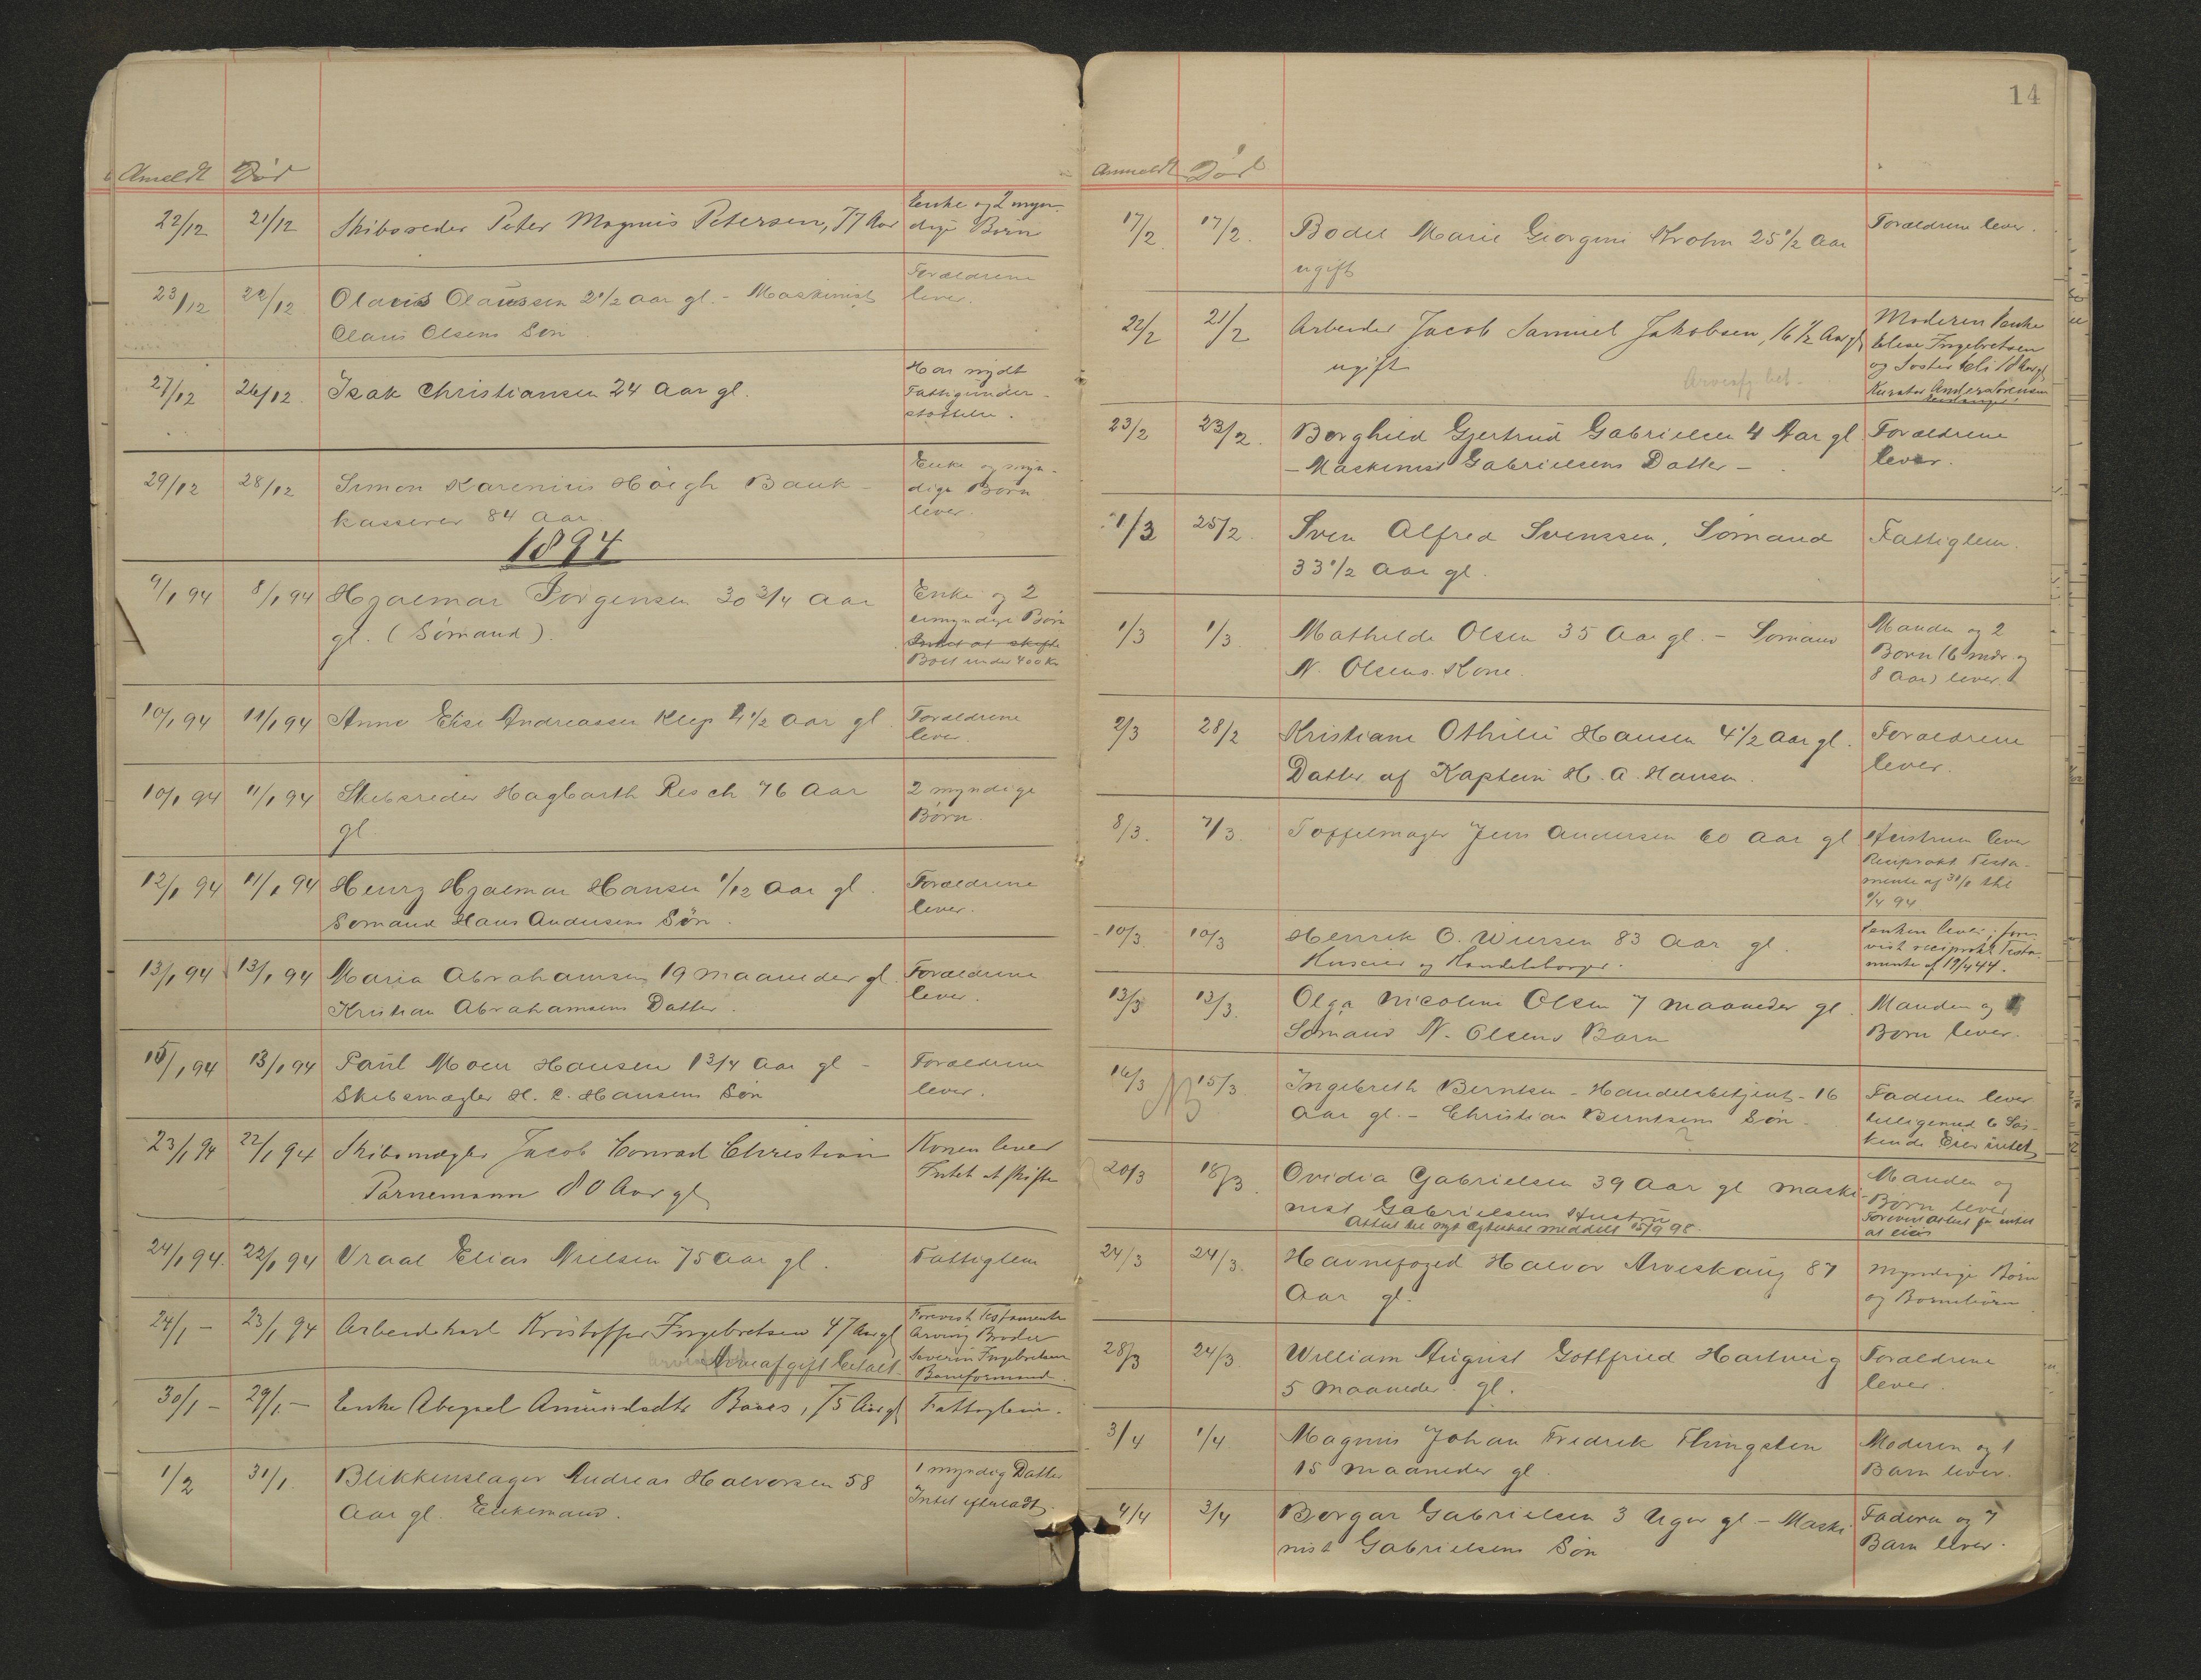 Anmeldt Død
22/12 21/12 Skibsreder Peter Magnus Petersen, 77 Aar
Enke og 2 myn-
dige Børn
23/12 22/12 Olaus Olaussen 2 1/2 aar gl. - Maskinist
Olaus Olsens Søn
Forældrene
lever.
27/12 26/12. Isak Christiansen 24 Aar gl.
Har nydt
Fattigunder-
støttelse.
29/12 28/12 Simon Karenius Høegh Bank-
kasserer 84 Aar
Enke og myn-
dige Børn
lever.
1894
9/1 94 8/1 94 Hjalmar Jørgensen 30 3/4 aar
gl. (Sømand).
Enke og 2
umyndige Børn
Intet at skifte
Boet under 400 Kr
10/1 94 11/1 94 Anna Elise Andreassen Klep 4 1/2 aar gl.
Forældrene
lever.
10/1 94 11/1 94 Skibsreder Hagbarth Resch 76 Aar
gl.
2 myndige
Børn.
12/1 94 11/1 94 Henry Hjalmar Hansen 1/12 aar gl.
Sømand Hans Andersens Søn.
Forældrene
lever.
13/1 94 13/1 94 Maria Abrahamsen 19 maaneder gl.
Kristian Abrahamsens Datter.
Forældrene
lever.
15/1 94 13/1 94 Paul Moen Hansen 1 3/4 Aar gl -
Skibsmægler H. C. Hansens Søn
Forældrene
lever.
23/1 94 22/1 94 Skibsmægler Jacob Conrad Christian
Parnemann 80 Aar gl
Konen lever
Intet at skifte
24/1 94. 22/1 94 Vraal Elias Nielsen 75 aar gl.
Fattiglem
24/1 - 23/1 94 Arbeidskarl Kristoffer Ingebretsen 47 Aar gl
Arveafgift betalt.
Forevist Testamente
Arving Broder
Severin Ingebretsen
Baneformand.
30/1 - 29/1 - Enke Abegael Amundsdtr Baas, 75 Aar gl
Fattiglem.
1/2 31/1. Blikkenslager Andreas Halvorsen 58
Aar gl. Enkemand.
1 myndig Datter
Intet efterladt.
14
Anmeldt Død
17/2. 17/2. Bodil Marie Georgine Krohn 25 1/2 Aar
ugift
Forældrene lever.
22/2 21/2 Arbeider Jacob Samuel Jakobsen, 16 1/2 Aar gl
ugift
Arveafg. bet.
Moderen Enke
Elise Ingebretsen
og Søster
Kurator
23/2 23/2. Borghild Gjertrud Gabrielsen 4 Aar gl
- Maskinist Gabrielsens Datter -
Forældrene
lever.
1/3 25/2. Sven Alfred Svenssen, Sømand
33 1/2 Aar gl.
Fattiglem.
1/3 1/3. Mathilde Olsen 35 Aar gl. - Sømand
N. Olsens Kone.
Manden og 2
Børn (6 mdr. og
8 Aar) lever.
2/3 28/2 Kristiane Othilie Hansen 4 1/2 Aar gl.
Datter af Kaptein H. A. Hansen.
Forældrene
lever.
8/3. 7/3. Tøffelmager Jens Andersen 60 Aar gl
Hustruen lever
Reciprokt Testa-
mente af
10/3. 10/3 Henrik O. Wiersen 83 Aar gl.
og Handelsborger.
Enken lever, fore-
vist reciprokt Testa-
mente af 19/4 44.
13/3 13/3. Olga Nicoline Olsen 7 maaneder gl.
Sømand N. Olsens Barn
Manden og
Børn lever.
16/3 NB 15/3 Ingebreth Berntsen - Handelsbetjent - 16
Aar gl. - Christian Berntsens Søn -
Faderen lever
tilligemed 6 Søs-
kende Eier intet
20/3 18/3 Ovidia Gabrielsen 39 Aar gl Maski-
nist Gabrielsens Hustru
Attest til nyt Ægteskab meddelt 15/9 98.
Manden og
Børn lever
Forevist Attest for intet
at eie
24/3 24/3. Havnefoged Halvor Arveskaug 87
Aar gl.
Myndige Børn
og Børnebørn.
28/3 24/3. William August Gottfried Hartweig
5 maaneder gl.
Forældrene
lever.
3/4 1/4 Magnus Johan Fredrik Thingsten
15 maaneder gl
Moderen og 1
Barn lever.
4/4 3/4 Borgar Gabrielsen 3 Uger gl - Maski-
nist Gabrielsens Søn
Faderen og 7
Barn lever.